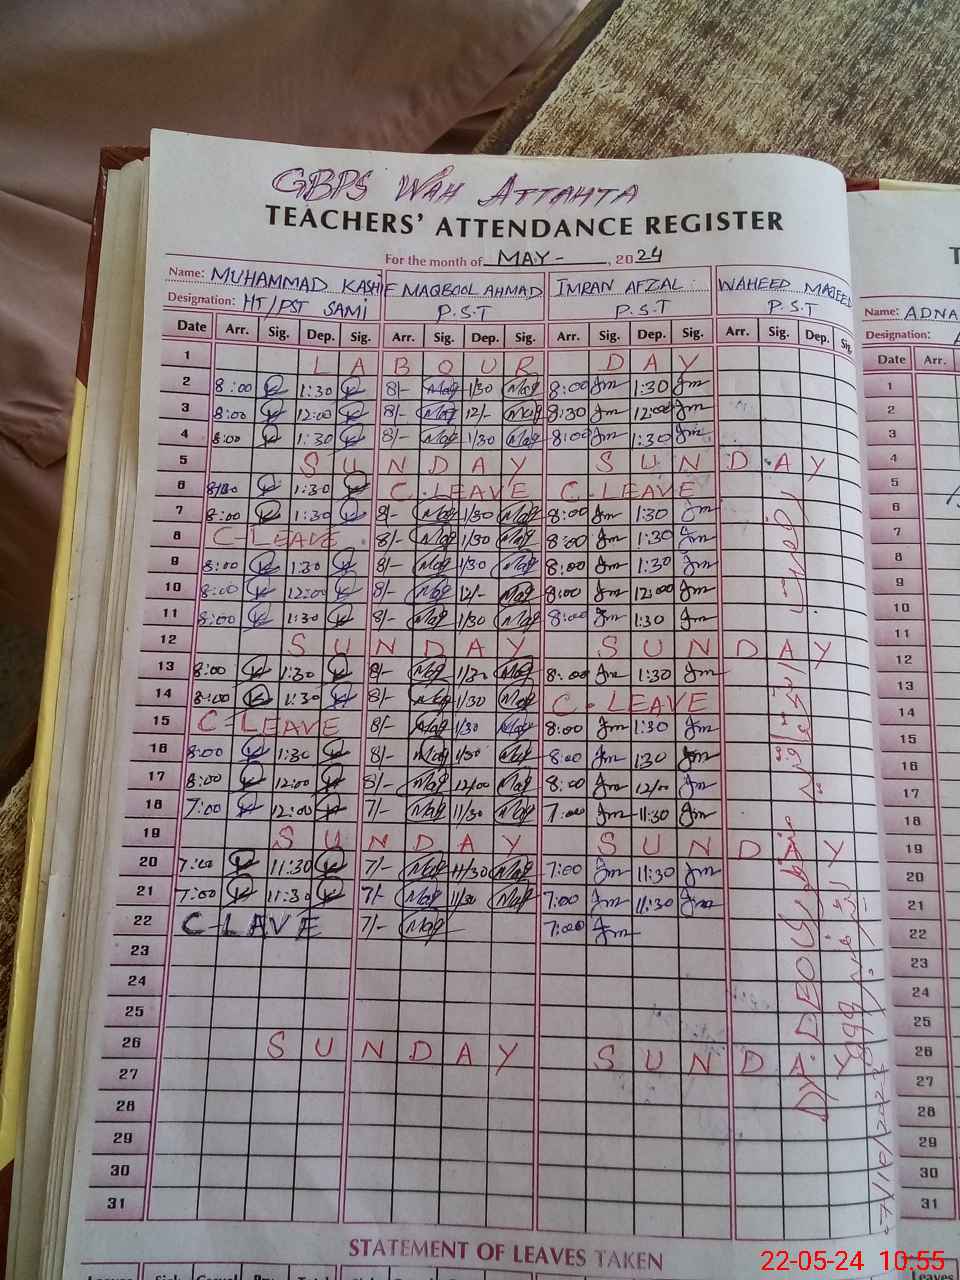 GBPS WAH ATTAHTA
TEACHERS' ATTENDANCE REGISTER
For the month of MAY- , 2024
Name: MUHAMMAD KASHIF MAQBOOL AHMAD IMRAN AFZAL WAHEED MAJEED
Designation: HT/PST SAMI P.S.T P.S.T P.S.T
Date Arr. Sig. Dep. Sig. Arr. Sig. Dep. Sig. Arr. Sig. Dep. Sig. Arr. Sig. Dep. Sig.
1 LABOUR DAY
2 8:00 1:30 8/- Maq 1/30 Maq 8:00 Im 1:30 Im
3 8:00 12:00 8/- Maq 12/- Maq 8:30 Im 12:00 Im
4 8:00 1:30 8/- Maq 1/30 Maq 8:00 Im 1:30 Im
5 SUNDAY SUNDAY
6 1:30 C-LEAVE C-LEAVE
7 8:00 1:30 8/- Maq 1/30 Maq 8:00 Im 1:30 Im
8 C-LEAVE 8/- Maq 1/30 Maq 8:00 Im 1:30 Im
9 8:00 1:30 8/- Maq 1/30 Maq 8:00 Im 1:30 Im
10 8:00 12:00 8/- Maq 12/- Maq 8:00 Im 12:00 Im
11 8:00 1:30 8/- Maq 1/30 Maq 8:00 Im 1:30 Im
12 SUNDAY SUNDAY
13 8:00 1:30 8/- Maq 1/30 Maq 8:00 Im 1:30 Im
14 8:00 1:30 8/- Maq 1/30 Maq C-LEAVE
15 C-LEAVE 8/- Maq 1/30 Maq 8:00 Im 1:30 Im
16 8:00 1:30 8/- Maq 1/30 Maq 8:00 Im 1:30 Im
17 8:00 12:00 8/- Maq 12/00 Maq 8:00 Im 12/00 Im
18 7:00 12:00 7/- Maq 11/30 Maq 7:00 Im 11:30 Im
19 SUNDAY SUNDAY
20 7:00 11:30 7/- Maq 11/30 Maq 7:00 Im 11:30 Im
21 7:00 11:30 7/- Maq 11/30 Maq 7:00 Im 11:30 Im
22 C-LAVE 7/- Maq 7:00 Im
23
24
25
26 SUNDAY SUNDAY
27
28
29
30
31
DY. DEO
STATEMENT OF LEAVES TAKEN
Name: ADNA
Designation:
Date Arr.
1
2
3
4
5
6
7
8
9
10
11
12
13
14
15
16
17
18
19
20
21
22
23
24
25
26
27
28
29
30
31
Leaves
22-05-24 10:55